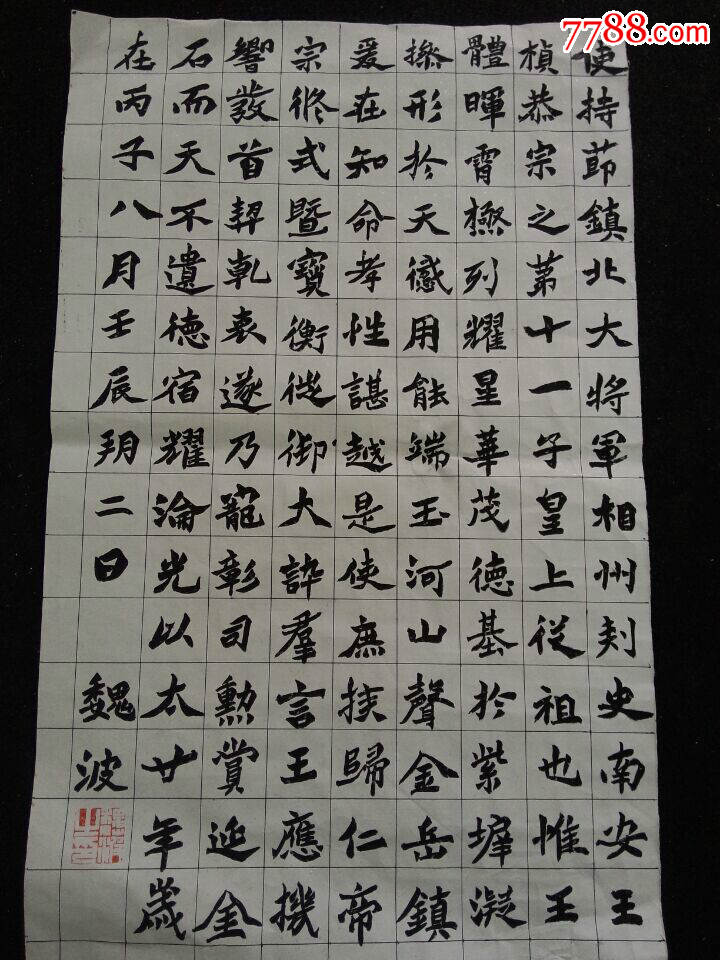 使持莭鎮北大將軍相州刾史南安王
楨恭宗之苐十一子皇上從祖也惟王
體暉霄極列耀星華茂德基於紫墀凝
操形於天感用能端玉河山聲金岳鎮
爰在知命孝性諶越是使庶族歸仁帝
宗攸式暨寶衡從御大訟羣言王應機
響發首契乹衷遂乃寵彰司勲賞延金
石而天不遺德宿耀淪光以太廿年歲
在丙子八月壬辰朔二日
魏波
7788.com